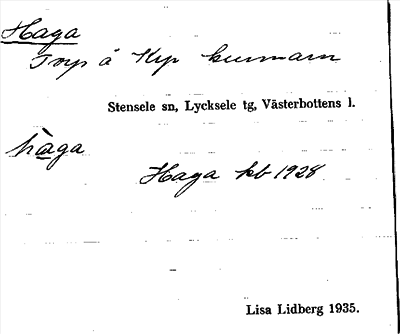 Haga
på
Stensele sn, Lycksele tg, Västerbottens l.
hàga
Haga kb 1928
Lisa Lidberg 1935.